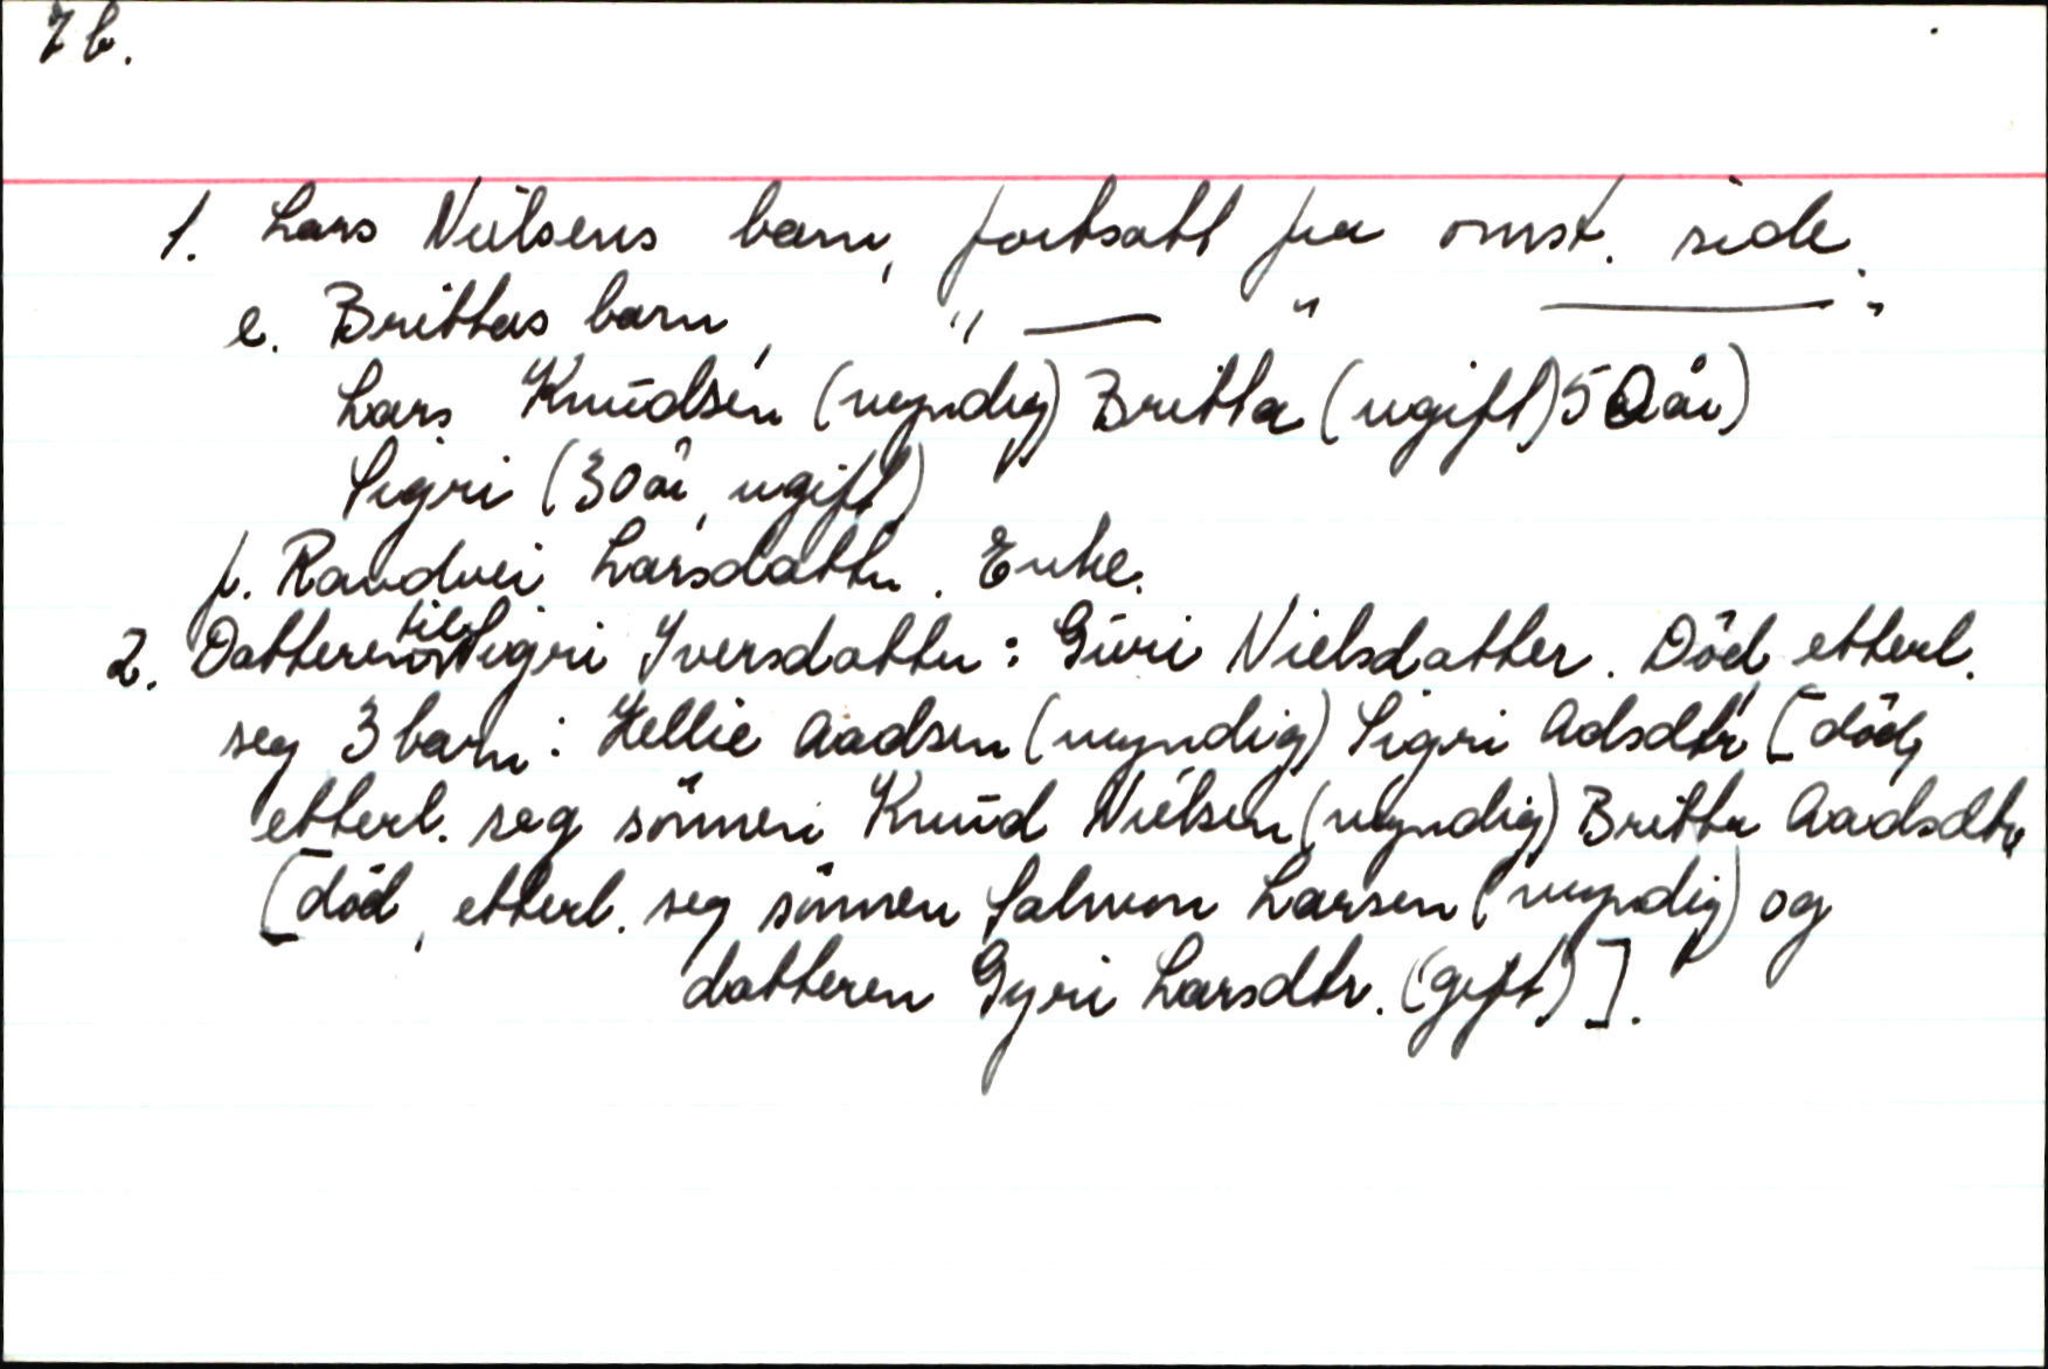 7b.
1. Lars Nielsens barn, fortsatt fra omst. side.
e. Brittas barn, " — " — "
Lars Knudsen (myndig) Britta (ugift) 50 år)
Sigri (30 år, ugift)
f. Randvei Larsdatter. Enke.
2. Datteren til Sigri Iversdatter: Guri Nielsdatter. Död etterl.
seg 3 barn: Hellie Aadsen (myndig) Sigri Adsdtr [död,
etterl. seg sönnen Knud Nielsen (myndig) Britta Aadsdtr
[död, etterl. seg sönnen Salmon Larsen (myndig) og
datteren Gyri Larsdtr. (gift)].